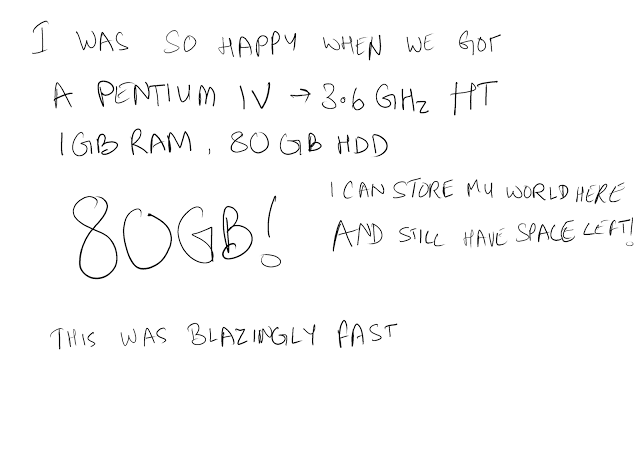 I WAS SO HAPPY WHEN WE GOT
A PENTIUM IV → 3.6 GHz HT
1GB RAM, 80 GB HDD
80GB!
I CAN STORE MY WORLD HERE
AND STILL HAVE SPACE LEFT!
THIS WAS BLAZINGLY FAST